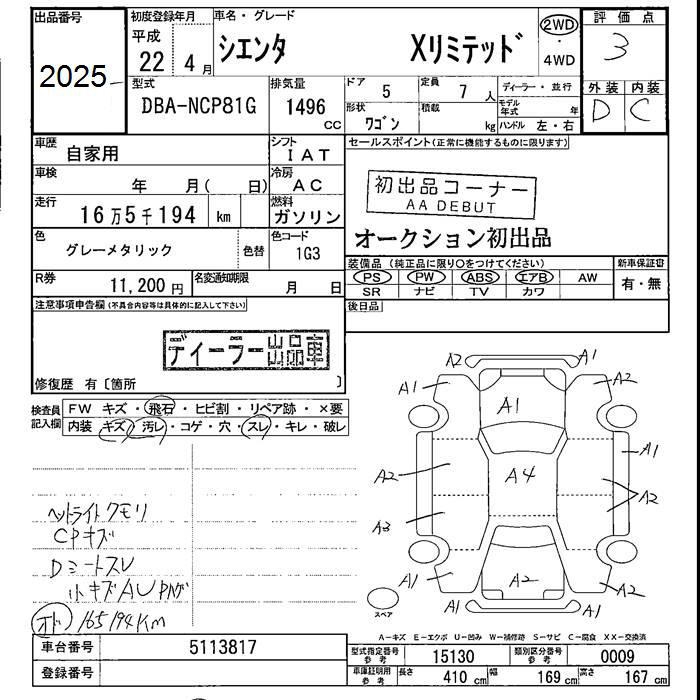 出品番号 初度登録年月 車名・グレード 2WD 評価点
2025 平成 シエンタ Xリミテッド ・ 3
22 4月 4WD
型式 排気量 ドア 定員 ディーラー・並行 外装 内装
DBA-NCP81G 1496 CC 5 7人 モデル年式 年 D C
形状 積載 ハンドル 左・右
ワゴン kg
車歴 自家用 シフト IAT セールスポイント(正常に機能するものに限ります)
車検 年 月( 日) 冷房 AC 初出品コーナー
AA DEBUT
走行 16万5千194 km 燃料 ガソリン
オークション初出品
色 グレーメタリック 色替 色コード 1G3
装備品(純正品に限り○をつけてください) 新車保証書
PS PW ABS エアB AW 有・無
SR ナビ TV カワ
R券 11,200円 名変通知期限 月 日
後日品
注意事項申告欄(不具合内容等は具体的に記入して下さい)
ディーラー出品車
修復歴 有〔箇所 〕
検査員記入欄 FW キズ・飛石・ヒビ割・リペア跡・×要
内装 キズ・汚レ・コゲ・穴・スレ・キレ・破レ
A2 A1
A1 A1 A2
A1
A2 A4 A2
A3
A1 A2 A2
A1 A1
スペア
ヘットライトクモリ
CPキズ
Dミートスレ
小キズAUPハゲ
オド 165194Km
A-キズ E-エクボ U-凹み W-補修跡 S-サビ C-腐食 XX-交換済
車台番号 5113817 型式指定番号 参考 15130 類別区分番号 参考 0009
登録番号 車庫証明用 参考 長さ 410 cm 幅 169 cm 高さ 167 cm